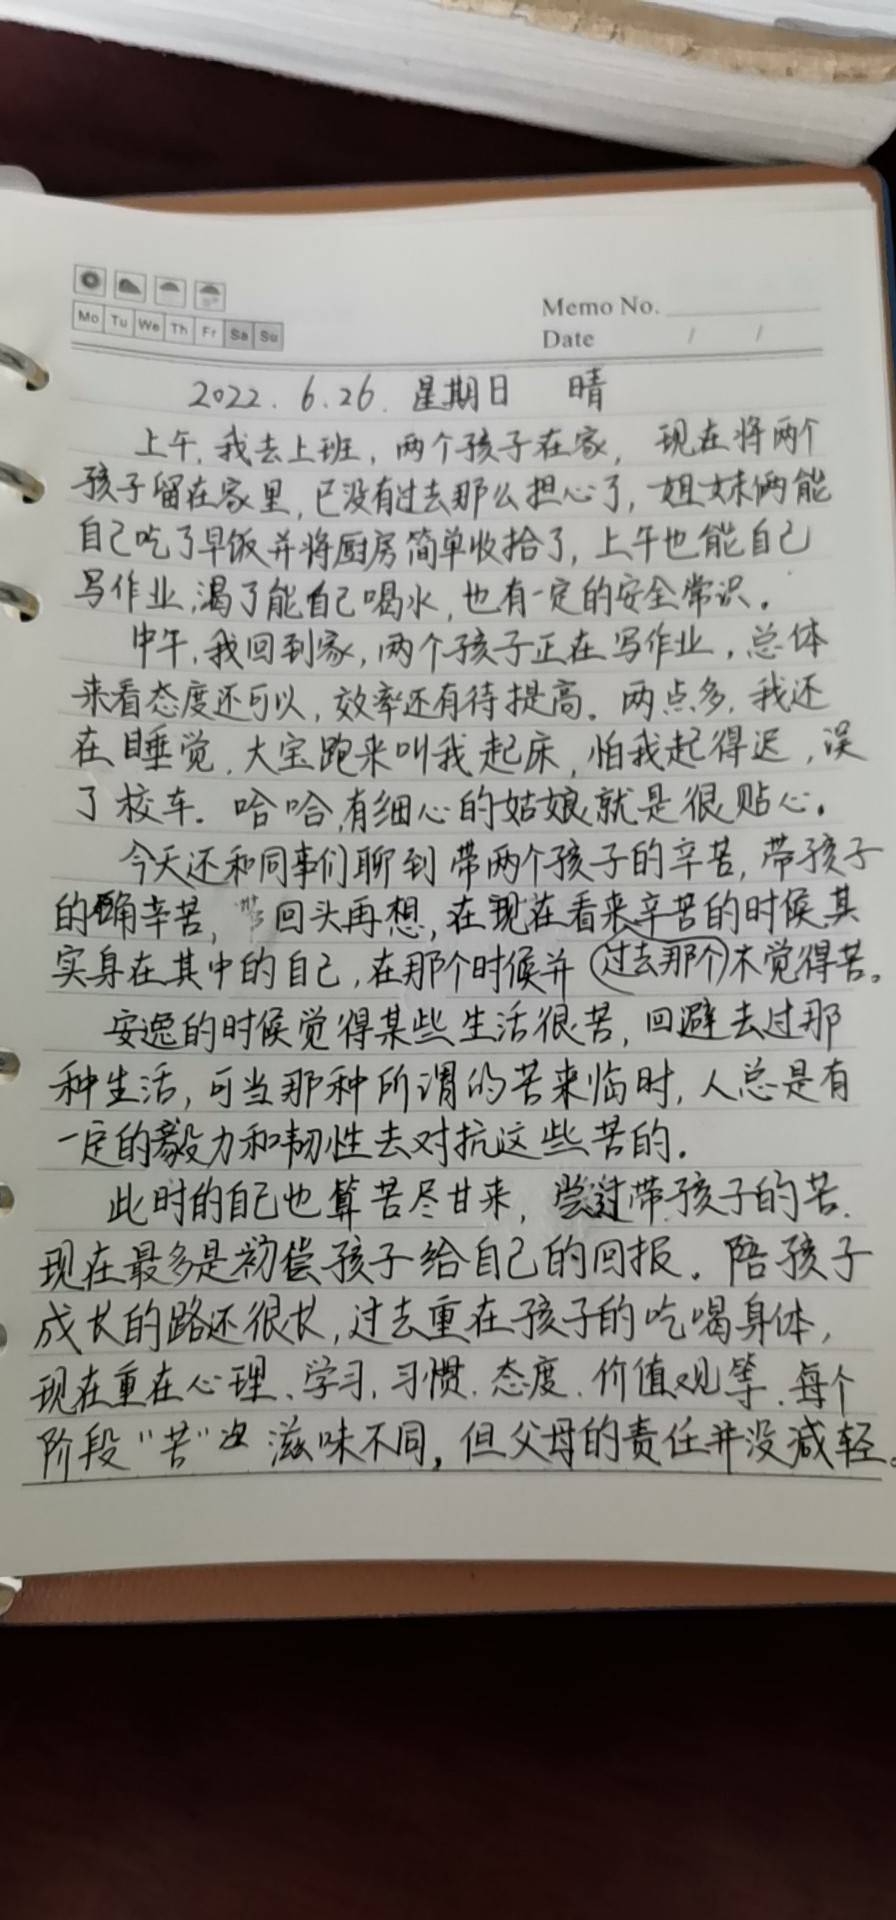 Mo Tu We Th Fr Sa Su
Memo No.
Date / /
2022.6.26. 星期日 晴
上午,我去上班,两个孩子在家,现在将两个
孩子留在家里,已没有过去那么担心了,姐妹俩能
自己吃了早饭并将厨房简单收拾了,上午也能自己
写作业,渴了能自己喝水,也有一定的安全常识。
中午,我回到家,两个孩子正在写作业,总体
来看态度还可以,效率还有待提高。两点多,我还
在睡觉,大宝跑来叫我起床,怕我起得迟,误
了校车。哈哈,有细心的姑娘就是很贴心。
今天还和同事们聊到带两个孩子的辛苦,带孩子
的确辛苦,回头再想,在现在看来辛苦的时候其
实身在其中的自己,在那个时候并(过去那个)不觉得苦。
安逸的时候觉得某些生活很苦,回避去过那
种生活,可当那种所谓的苦来临时,人总是有
一定的毅力和韧性去对抗这些苦的。
此时的自己也算苦尽甘来,尝过带孩子的苦,
现在最多是初偿孩子给自己的回报。陪孩子
成长的路还很长,过去重在孩子的吃喝身体,
现在重在心理、学习、习惯、态度、价值观等,每个
阶段"苦"滋味不同,但父母的责任并没减轻。